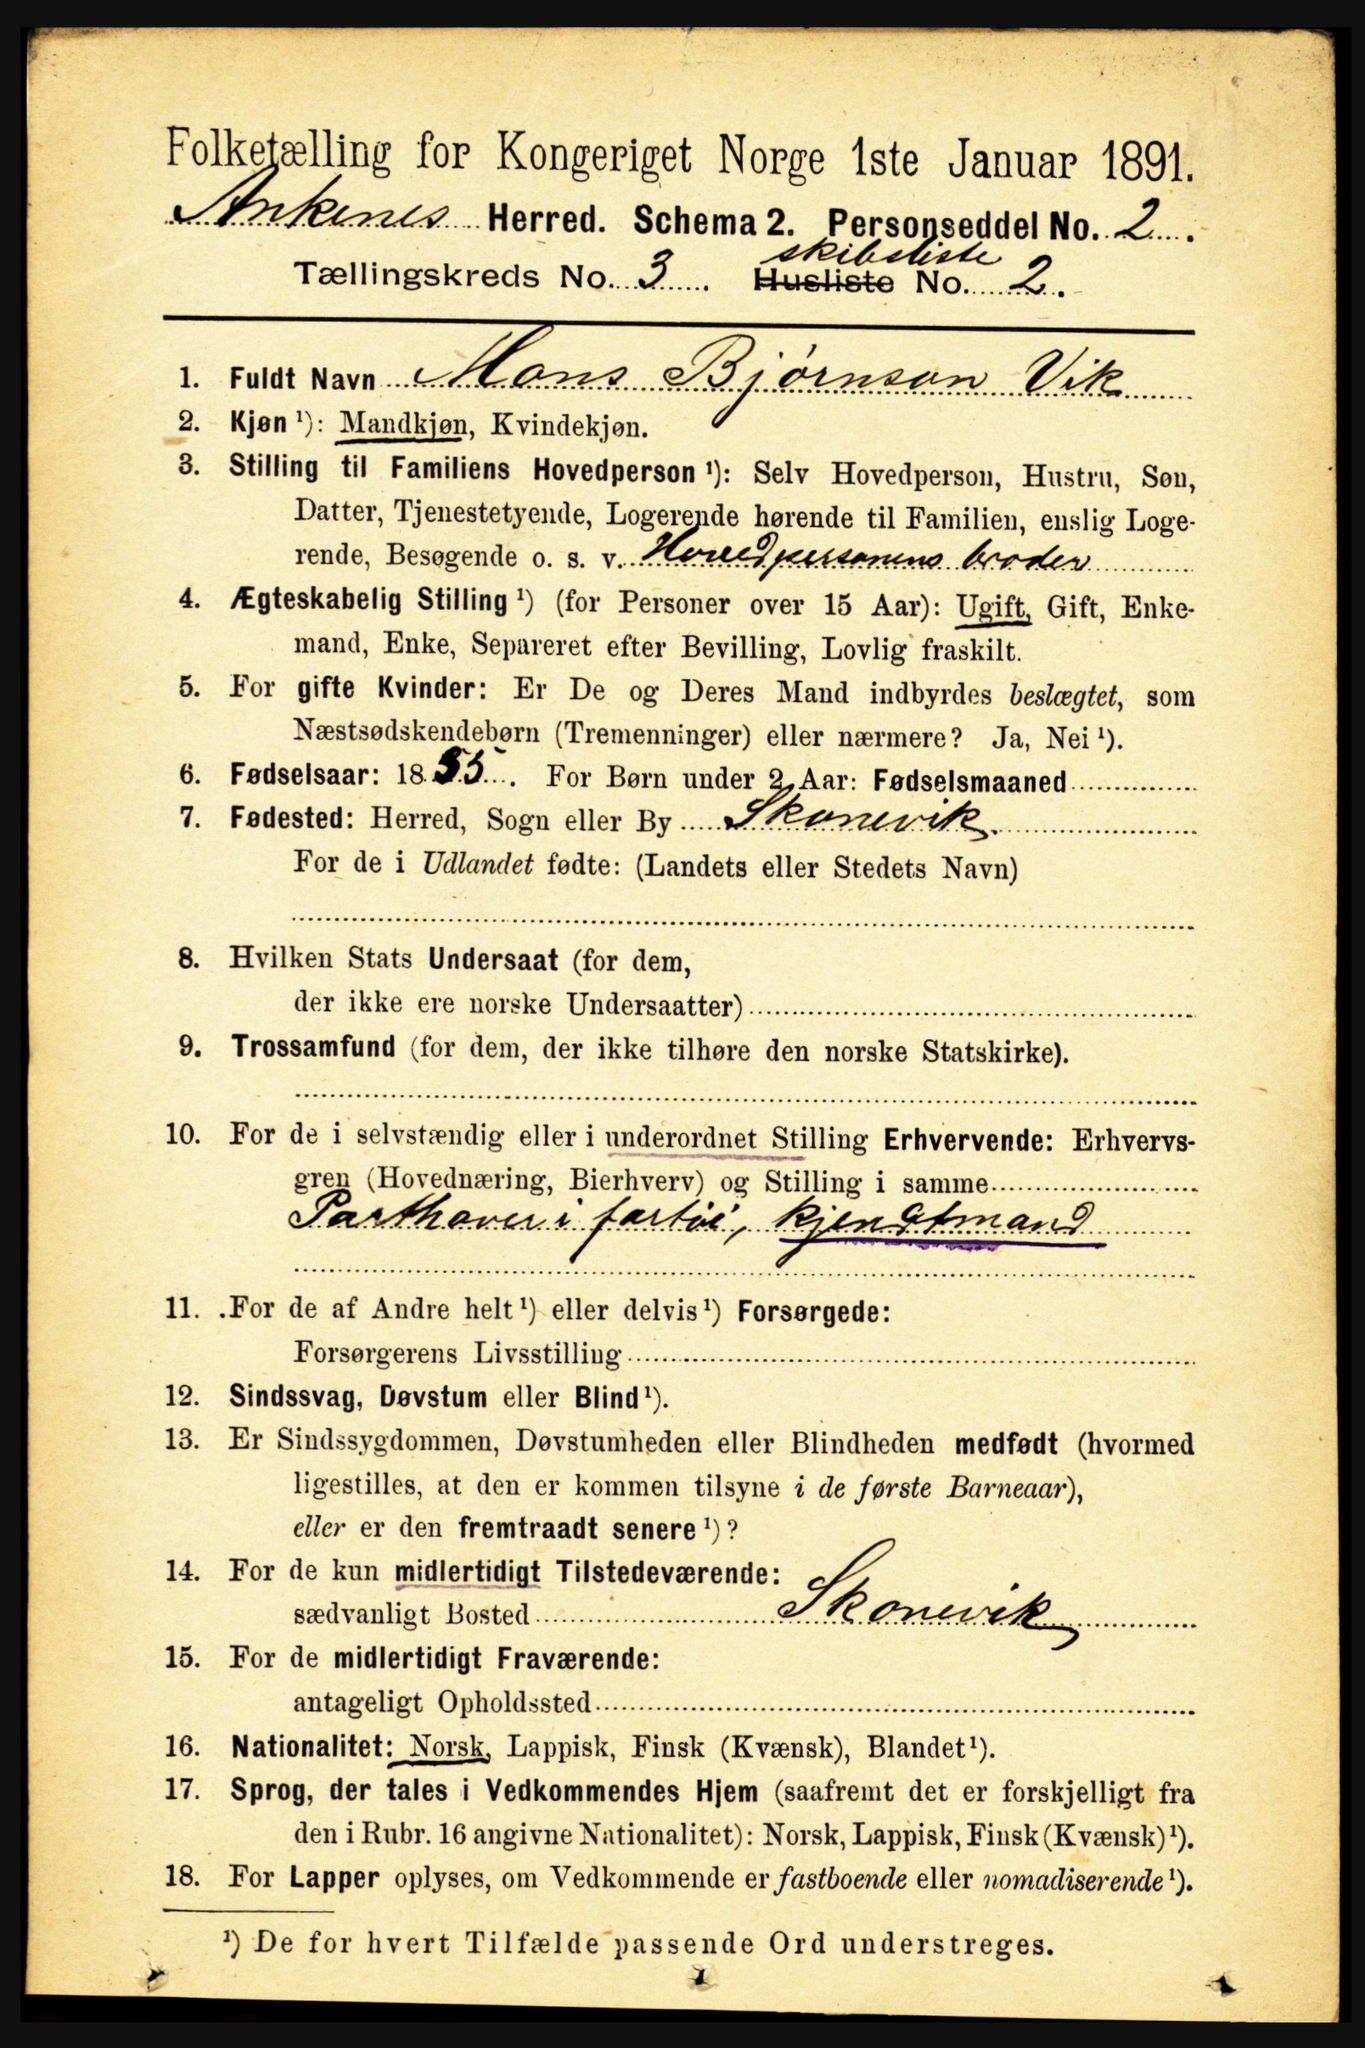 Folketælling for Kongeriget Norge 1ste Januar 1891.
Ankenes Herred. Schema 2. Personseddel No. 2.
skibsliste
Tællingskreds No. 3. Husliste No. 2.
1. Fuldt Navn Mons Bjørnson Vik
2. Kjøn ¹): Mandkjøn, Kvindekjøn.
3. Stilling til Familiens Hovedperson ¹): Selv Hovedperson, Hustru, Søn,
Datter, Tjenestetyende, Logerende hørende til Familien, enslig Loge-
rende, Besøgende o. s. v. Hovedpersonens broder
4. Ægteskabelig Stilling ¹) (for Personer over 15 Aar): Ugift, Gift, Enke-
mand, Enke, Separeret efter Bevilling, Lovlig fraskilt.
5. For gifte Kvinder: Er De og Deres Mand indbyrdes beslægtet, som
Næstsødskendebørn (Tremenninger) eller nærmere? Ja, Nei ¹).
6. Fødselsaar: 1855. For Børn under 2 Aar: Fødselsmaaned
7. Fødested: Herred, Sogn eller By Skonevik.
For de i Udlandet fødte: (Landets eller Stedets Navn)
8. Hvilken Stats Undersaat (for dem,
der ikke ere norske Undersaatter)
9. Trossamfund (for dem, der ikke tilhøre den norske Statskirke).
10. For de i selvstændig eller i underordnet Stilling Erhvervende: Erhvervs-
gren (Hovednæring, Bierhverv) og Stilling i samme
Parthaver i fartøi, kjendtmand
11. .For de af Andre helt ¹) eller delvis ¹) Forsørgede:
Forsørgerens Livsstilling
12. Sindssvag, Døvstum eller Blind ¹).
13. Er Sindssygdommen, Døvstumheden eller Blindheden medfødt (hvormed
ligestilles, at den er kommen tilsyne i de første Barneaar),
eller er den fremtraadt senere ¹)?
14. For de kun midlertidigt Tilstedeværende:
sædvanligt Bosted Skonevik
15. For de midlertidigt Fraværende:
antageligt Opholdssted
16. Nationalitet: Norsk, Lappisk, Finsk (Kvænsk), Blandet ¹).
17. Sprog, der tales i Vedkommendes Hjem (saafremt det er forskjelligt fra
den i Rubr. 16 angivne Nationalitet): Norsk, Lappisk, Finsk (Kvænsk) ¹).
18. For Lapper oplyses, om Vedkommende er fastboende eller nomadiserende ¹).
¹) De for hvert Tilfælde passende Ord understreges.